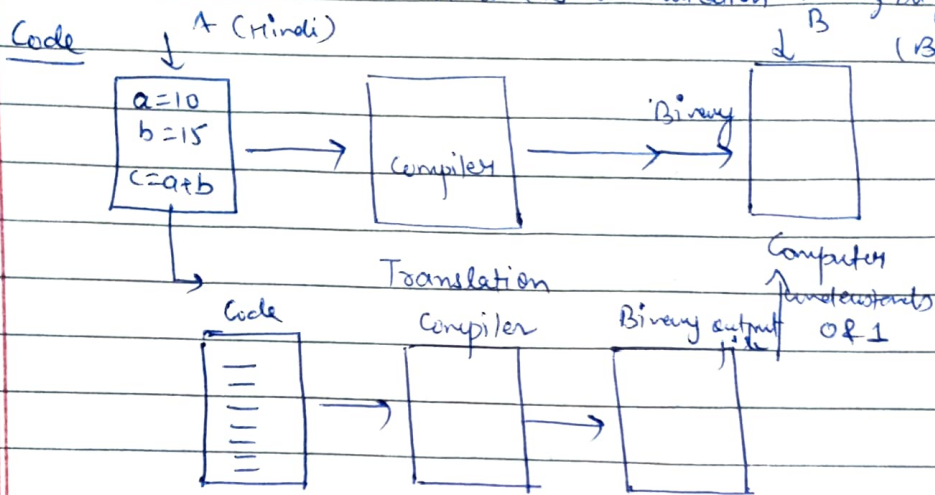 A (Hindi)
B
Code
(B
a=10
b=15
c=a+b
Compiler
Binary
Computer
understands
0 & 1
Translation
Code
Compiler
Binary output
file